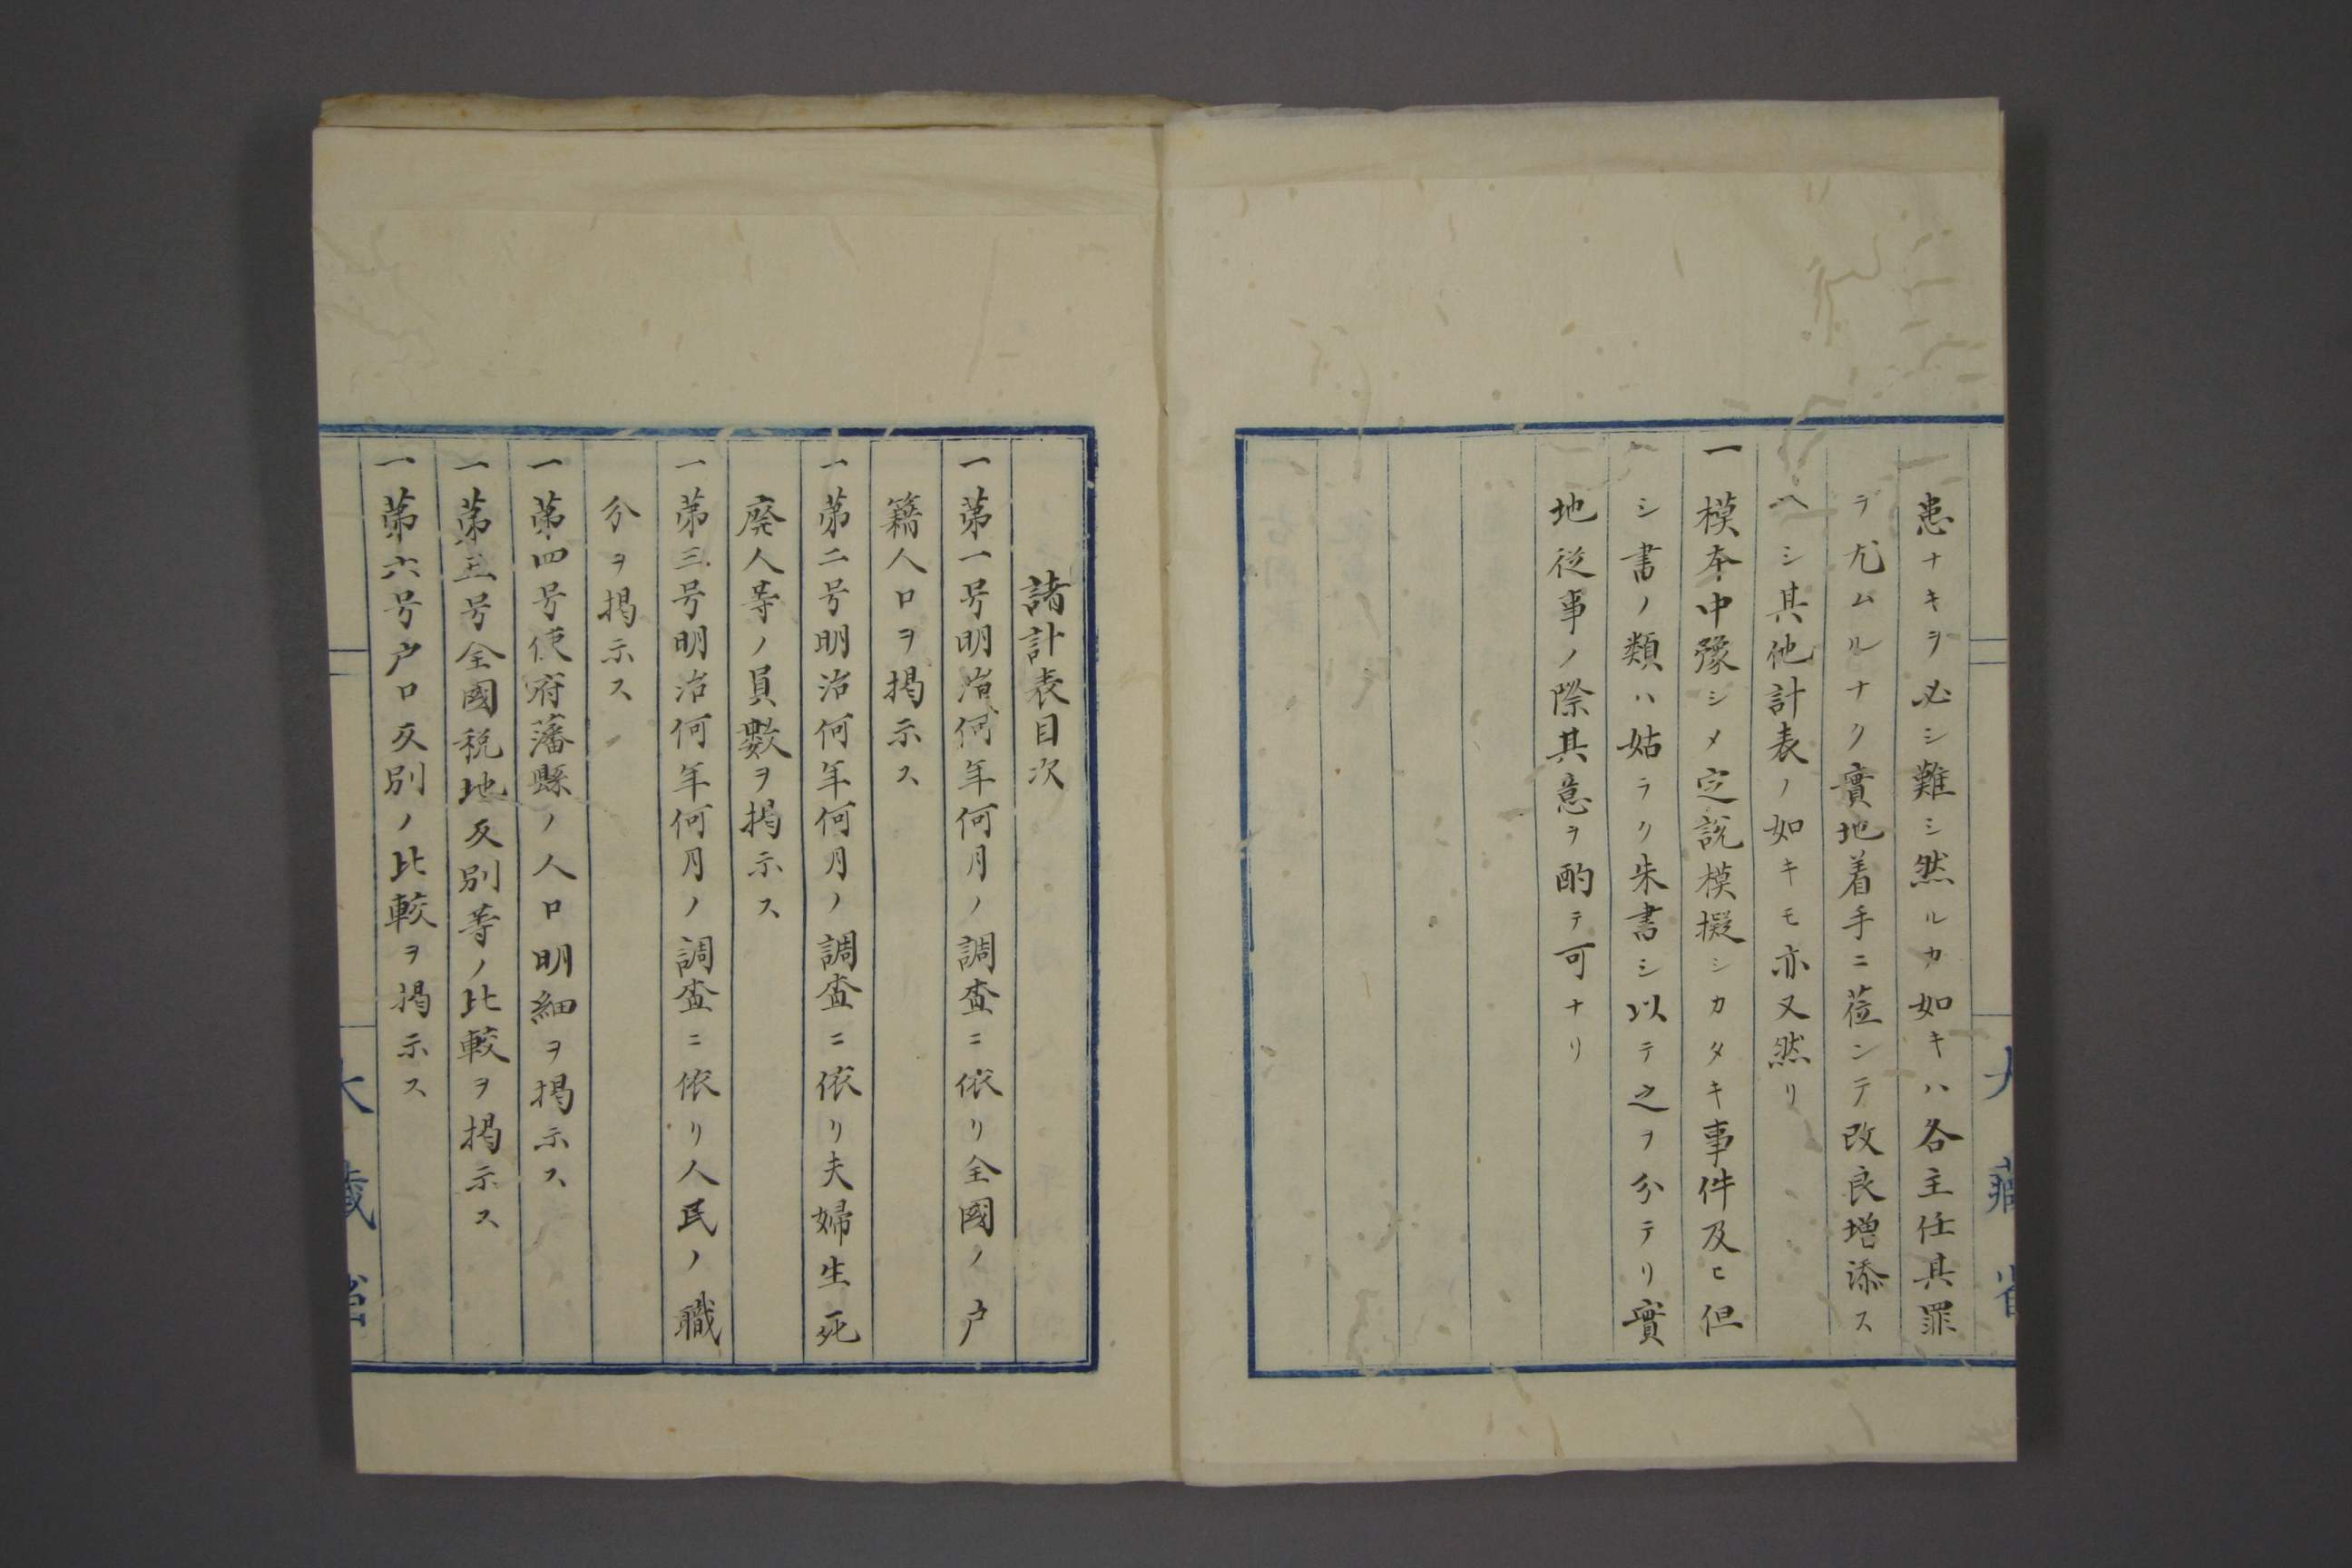 患ナキヲ必シ難シ然ルカ如キハ各主任其罪
ヲ尤ムルナク實地着手ニ莅ンテ改良増添ス
ヘシ其他計表ノ如キモ亦又然リ
一模本中豫シメ定説模擬シカタキ事件及ヒ但
シ書ノ類ハ姑ラク朱書シ以テ之ヲ分テリ實
地従事ノ際其意ヲ酌テ可ナリ
諸計表目次
一第一号明治何年何月ノ調査ニ依リ全國ノ戸
籍人口ヲ掲示ス
一第二号明治何年何月ノ調査ニ依リ夫婦生死
廢人等ノ員數ヲ掲示ス
一第三号明治何年何月ノ調査ニ依リ人民ノ職
分ヲ掲示ス
一第四号使府藩縣ノ人口明細ヲ掲示ス
一第五号全國税地反別等ノ比較ヲ掲示ス
一第六号戸口反別ノ比較ヲ掲示ス
大藏省